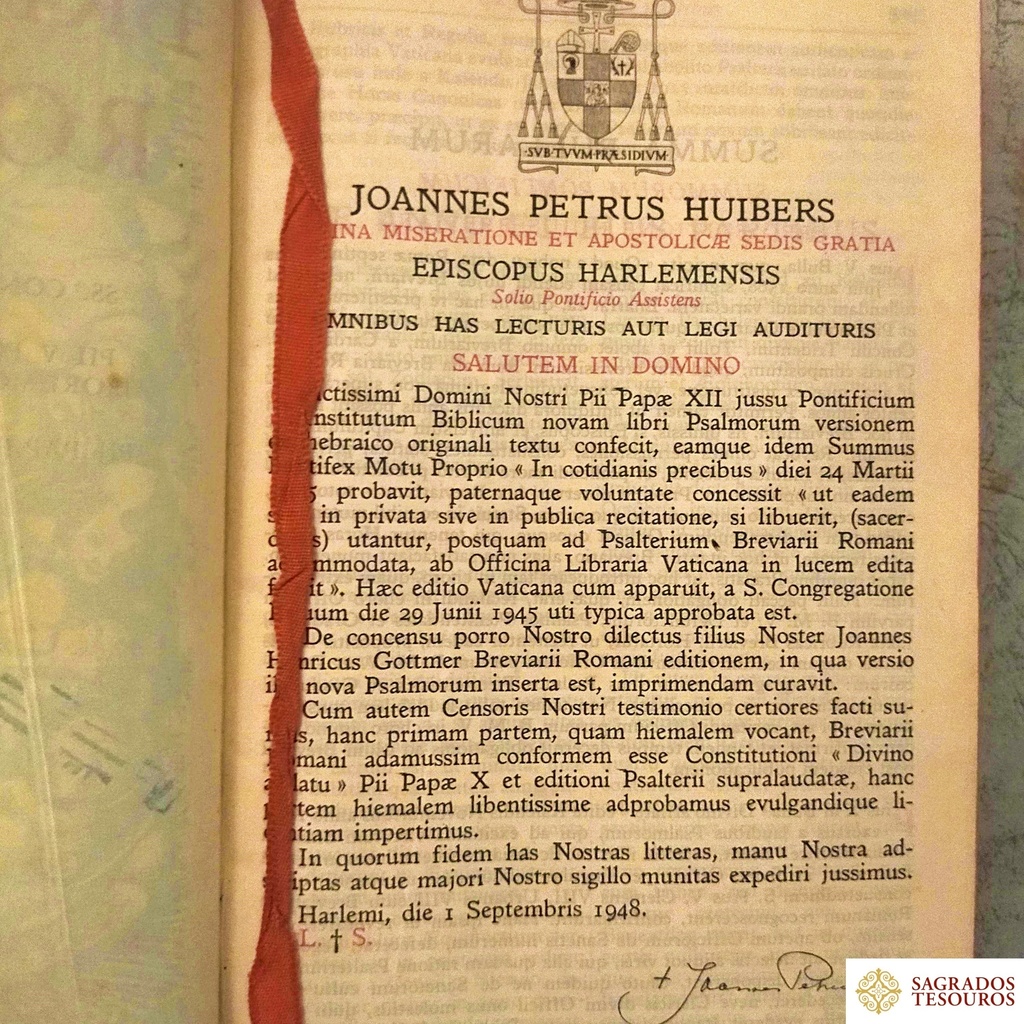 SVB·TVVM·PRÆSIDIVM
JOANNES PETRUS HUIBERS
INA MISERATIONE ET APOSTOLICÆ SEDIS GRATIA
EPISCOPUS HARLEMENSIS
Solio Pontificio Assistens
MNIBUS HAS LECTURIS AUT LEGI AUDITURIS
SALUTEM IN DOMINO
ctissimi Domini Nostri Pii Papæ XII jussu Pontificium
Institutum Biblicum novam libri Psalmorum versionem
hebraico originali textu confecit, eamque idem Summus
tifex Motu Proprio « In cotidianis precibus » diei 24 Martii
5 probavit, paternaque voluntate concessit « ut eadem
s in privata sive in publica recitatione, si libuerit, (sacer-
d s) utantur, postquam ad Psalterium Breviarii Romani
ac mmodata, ab Officina Libraria Vaticana in lucem edita
f it ». Hæc editio Vaticana cum apparuit, a S. Congregatione
uum die 29 Junii 1945 uti typica approbata est.
De concensu porro Nostro dilectus filius Noster Joannes
H nricus Gottmer Breviarii Romani editionem, in qua versio
il nova Psalmorum inserta est, imprimendam curavit.
Cum autem Censoris Nostri testimonio certiores facti su-
s, hanc primam partem, quam hiemalem vocant, Breviarii
mani adamussim conformem esse Constitutioni « Divino
a latu » Pii Papæ X et editioni Psalterii supralaudatæ, hanc
p tem hiemalem libentissime adprobamus evulgandique li-
ntiam impertimus.
In quorum fidem has Nostras litteras, manu Nostra ad-
s iptas atque majori Nostro sigillo munitas expediri jussimus.
Harlemi, die 1 Septembris 1948.
L. † S.
+ Joannes Petru
SAGRADOS
TESOUROS